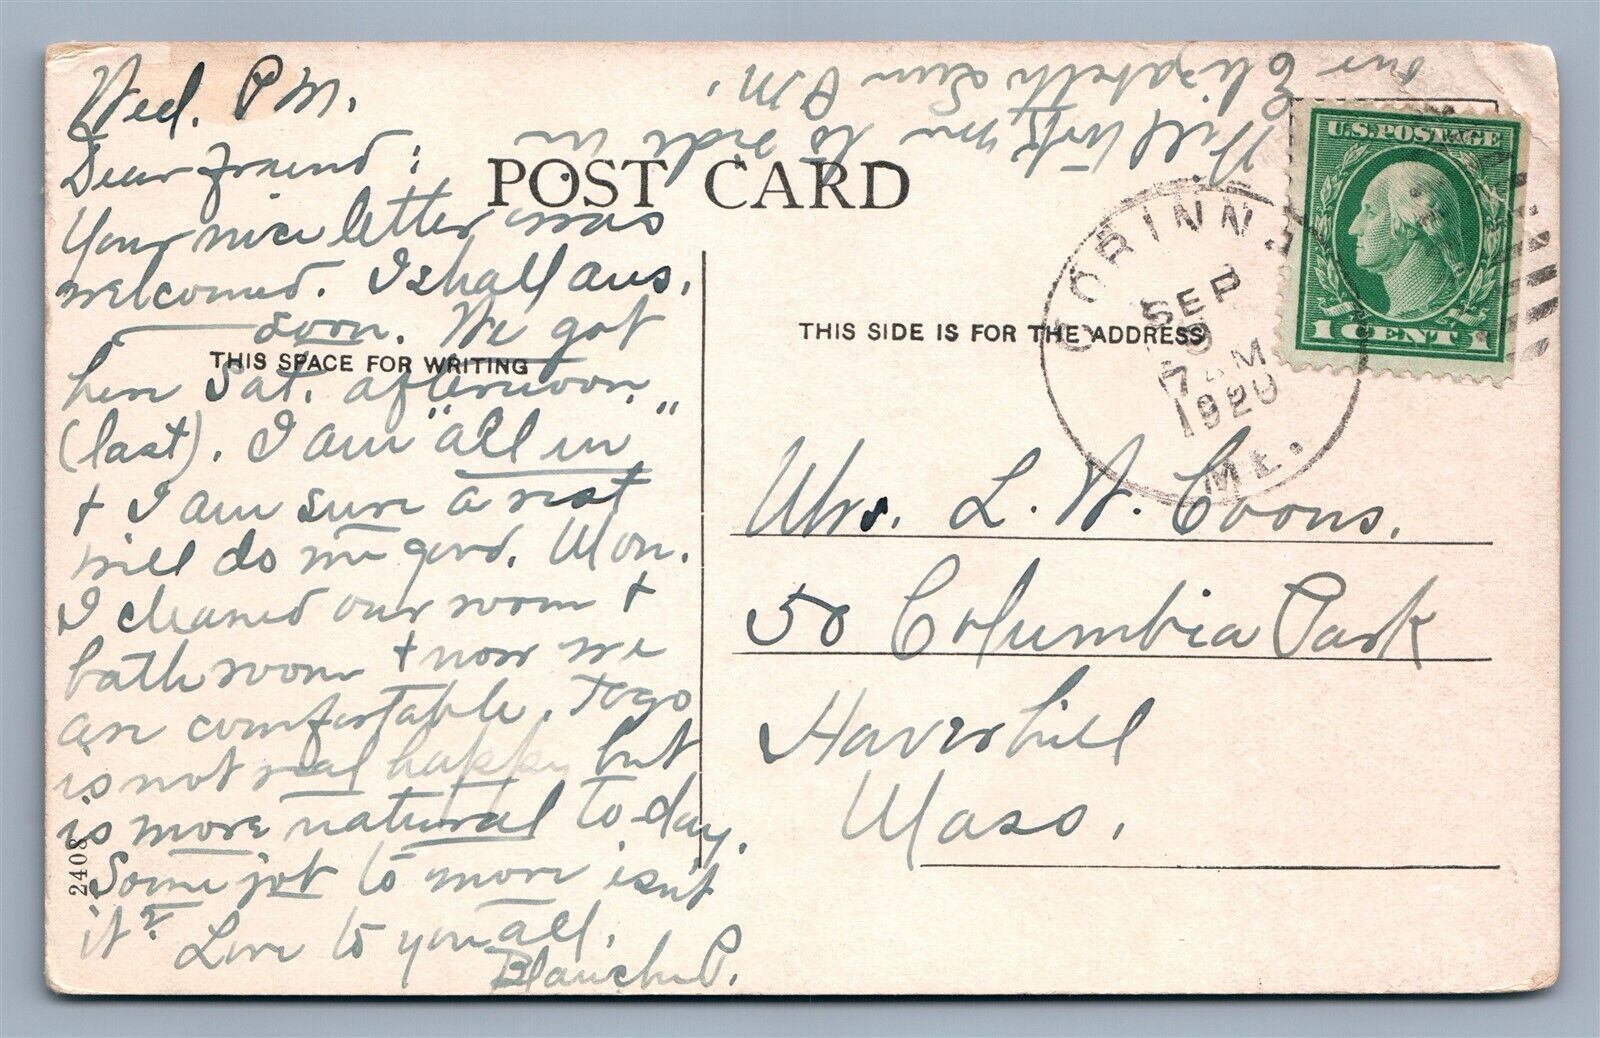 Wed. P M.
Dear friend:
Your nice letter was
welcomed. I shall ans.
soon. We got
here Sat. afternoon
(last). I am "all in"
+ I am sure a rest
will do me good. Mon.
I cleaned our room +
bath room + now we
are comfortable.
is not real happy but
is more natural to day.
Some job to move isn't
it? Love to you all.
Blanche P.
Will write you to
our Elizabeth P.M.
POST CARD
THIS SPACE FOR WRITING
THIS SIDE IS FOR THE ADDRESS
2408
U.S. POSTAGE
1 CENT 1
CORINNA
SEP
9
7 AM
1920
ME.
Mrs. L. W. Coons.
50 Columbia Park
Haverhill
Mass.